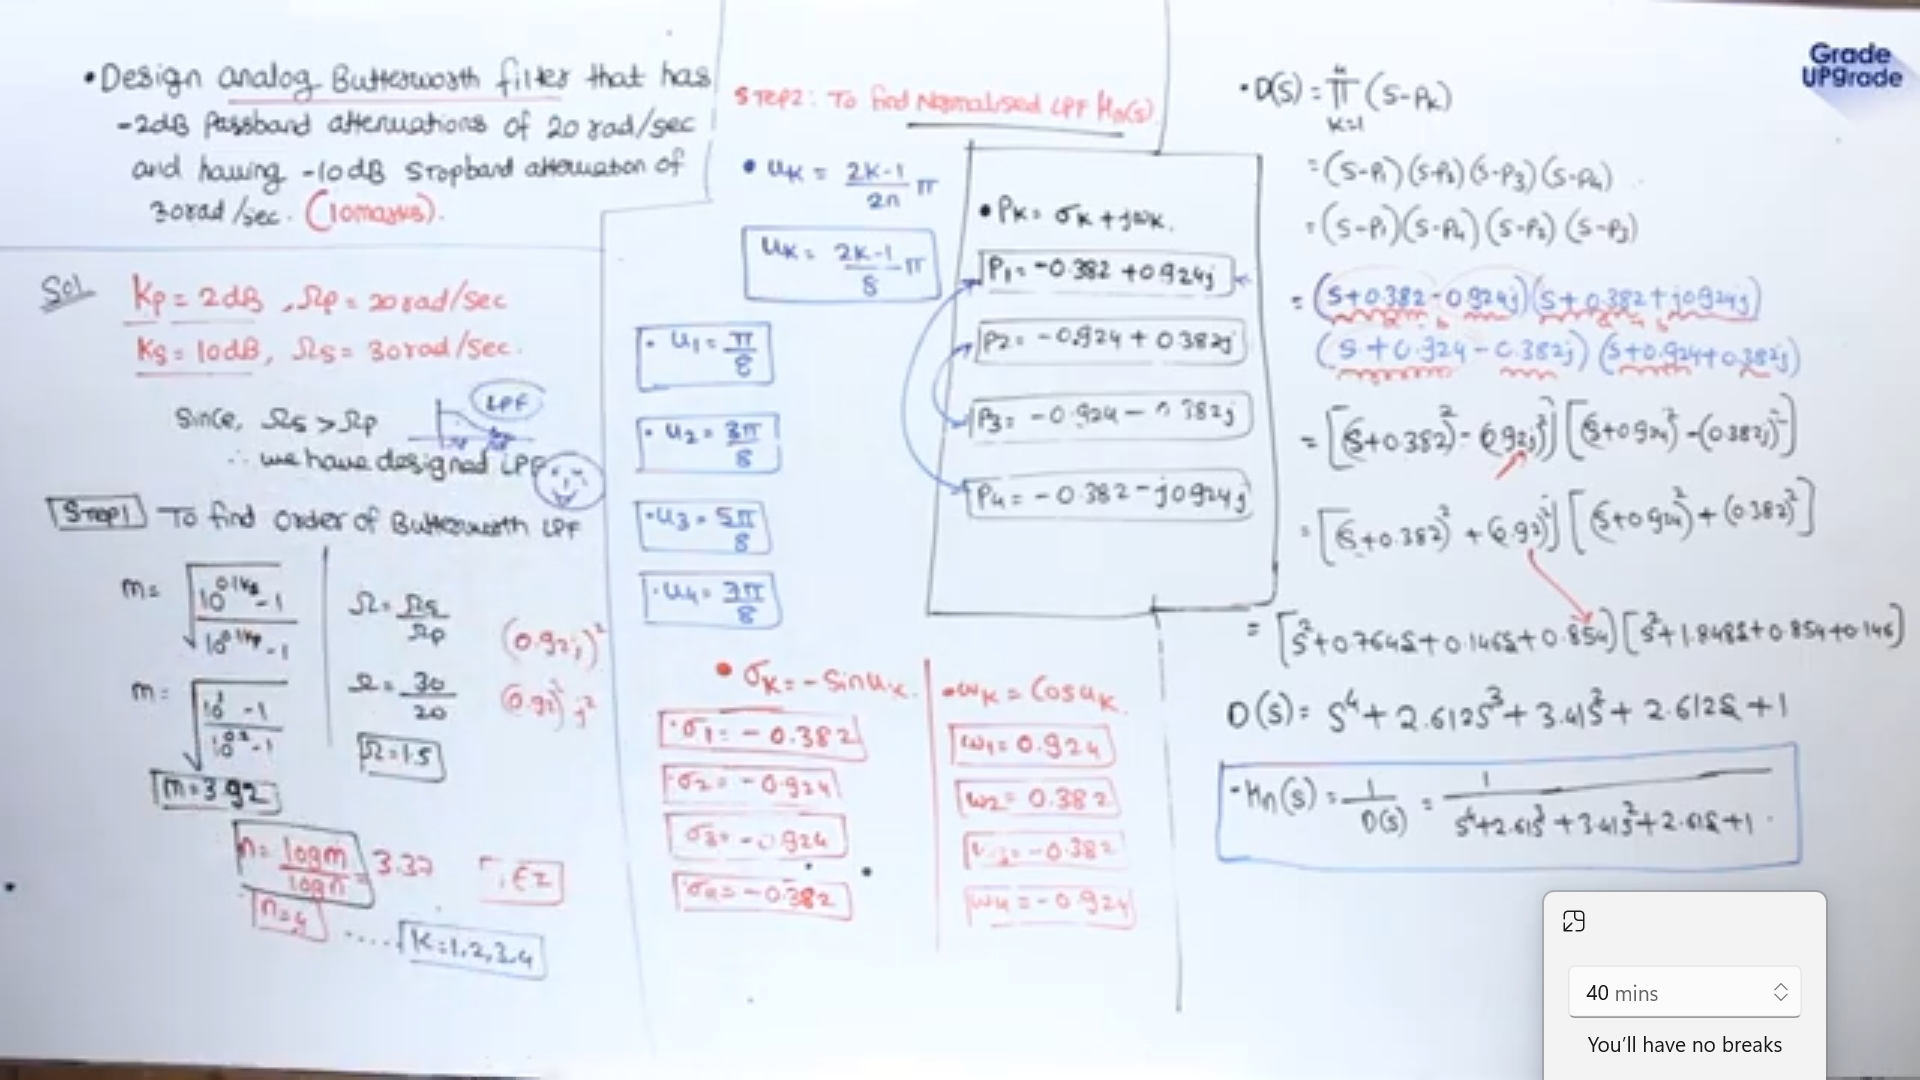 • Design analog Butterworth filter that has
-2dB Passband attenuations of 20 rad/sec
and having -10dB Stopband attenuation of
30rad/sec. (10marks).
Sol
Kp = 2dB , Ωp = 20 rad/sec
Ks = 10dB, Ωs = 30 rad/sec.
Since, Ωs > Ωp
LPF
∴ we have designed LPF
Step1 To find Order of Butterworth LPF
m = √(10^0.1Ks - 1 / 10^0.1Kp - 1)
m = √(10^1 - 1 / 10^0.2 - 1)
m = 3.92
Ω = Ωs/Ωp
Ω = 30/20
Ω = 1.5
(0.92j)²
(0.92)² j²
n = logm/logΩ = 3.37
n = 4
.... K = 1, 2, 3, 4
STEP2: To find Normalised LPF Hn(s).
• uK = 2K-1/2n π
uK = 2K-1/8 π
• u1 = π/8
• u2 = 3π/8
• u3 = 5π/8
• u4 = 7π/8
• σK = -sinuK.
• σ1 = -0.382
• σ2 = -0.924
σ3 = -0.924
σ4 = -0.382
• ωK = CosuK.
ω1 = 0.924
ω2 = 0.382
ω3 = -0.382
ω4 = -0.924
• PK = σK + jωK.
P1 = -0.382 + 0.924j
P2 = -0.924 + 0.382j
P3 = -0.924 - 0.382j
P4 = -0.382 - j0.924j
• D(s) = 4 π K=1 (s-PK)
= (s-P1)(s-P2)(s-P3)(s-P4)
= (s-P1)(s-P4)(s-P2)(s-P3)
= (s+0.382-0.924j)(s+0.382+j0.924j)
(s+0.924-0.382j)(s+0.924+0.382j)
= [(s+0.382)² - (0.92j)²][(s+0.924)² - (0.382j)²]
= [(s+0.382)² + (0.92)²][(s+0.924)² + (0.382)²]
= [s²+0.764s+0.146s+0.854)[s²+1.848s+0.854+0.146]
D(s) = s⁴ + 2.612s³ + 3.41s² + 2.612s + 1
• Hn(s) = 1/D(s) = 1/s⁴+2.61s³+3.41s²+2.61s+1
Grade
UPGrade
40 mins
You'll have no breaks